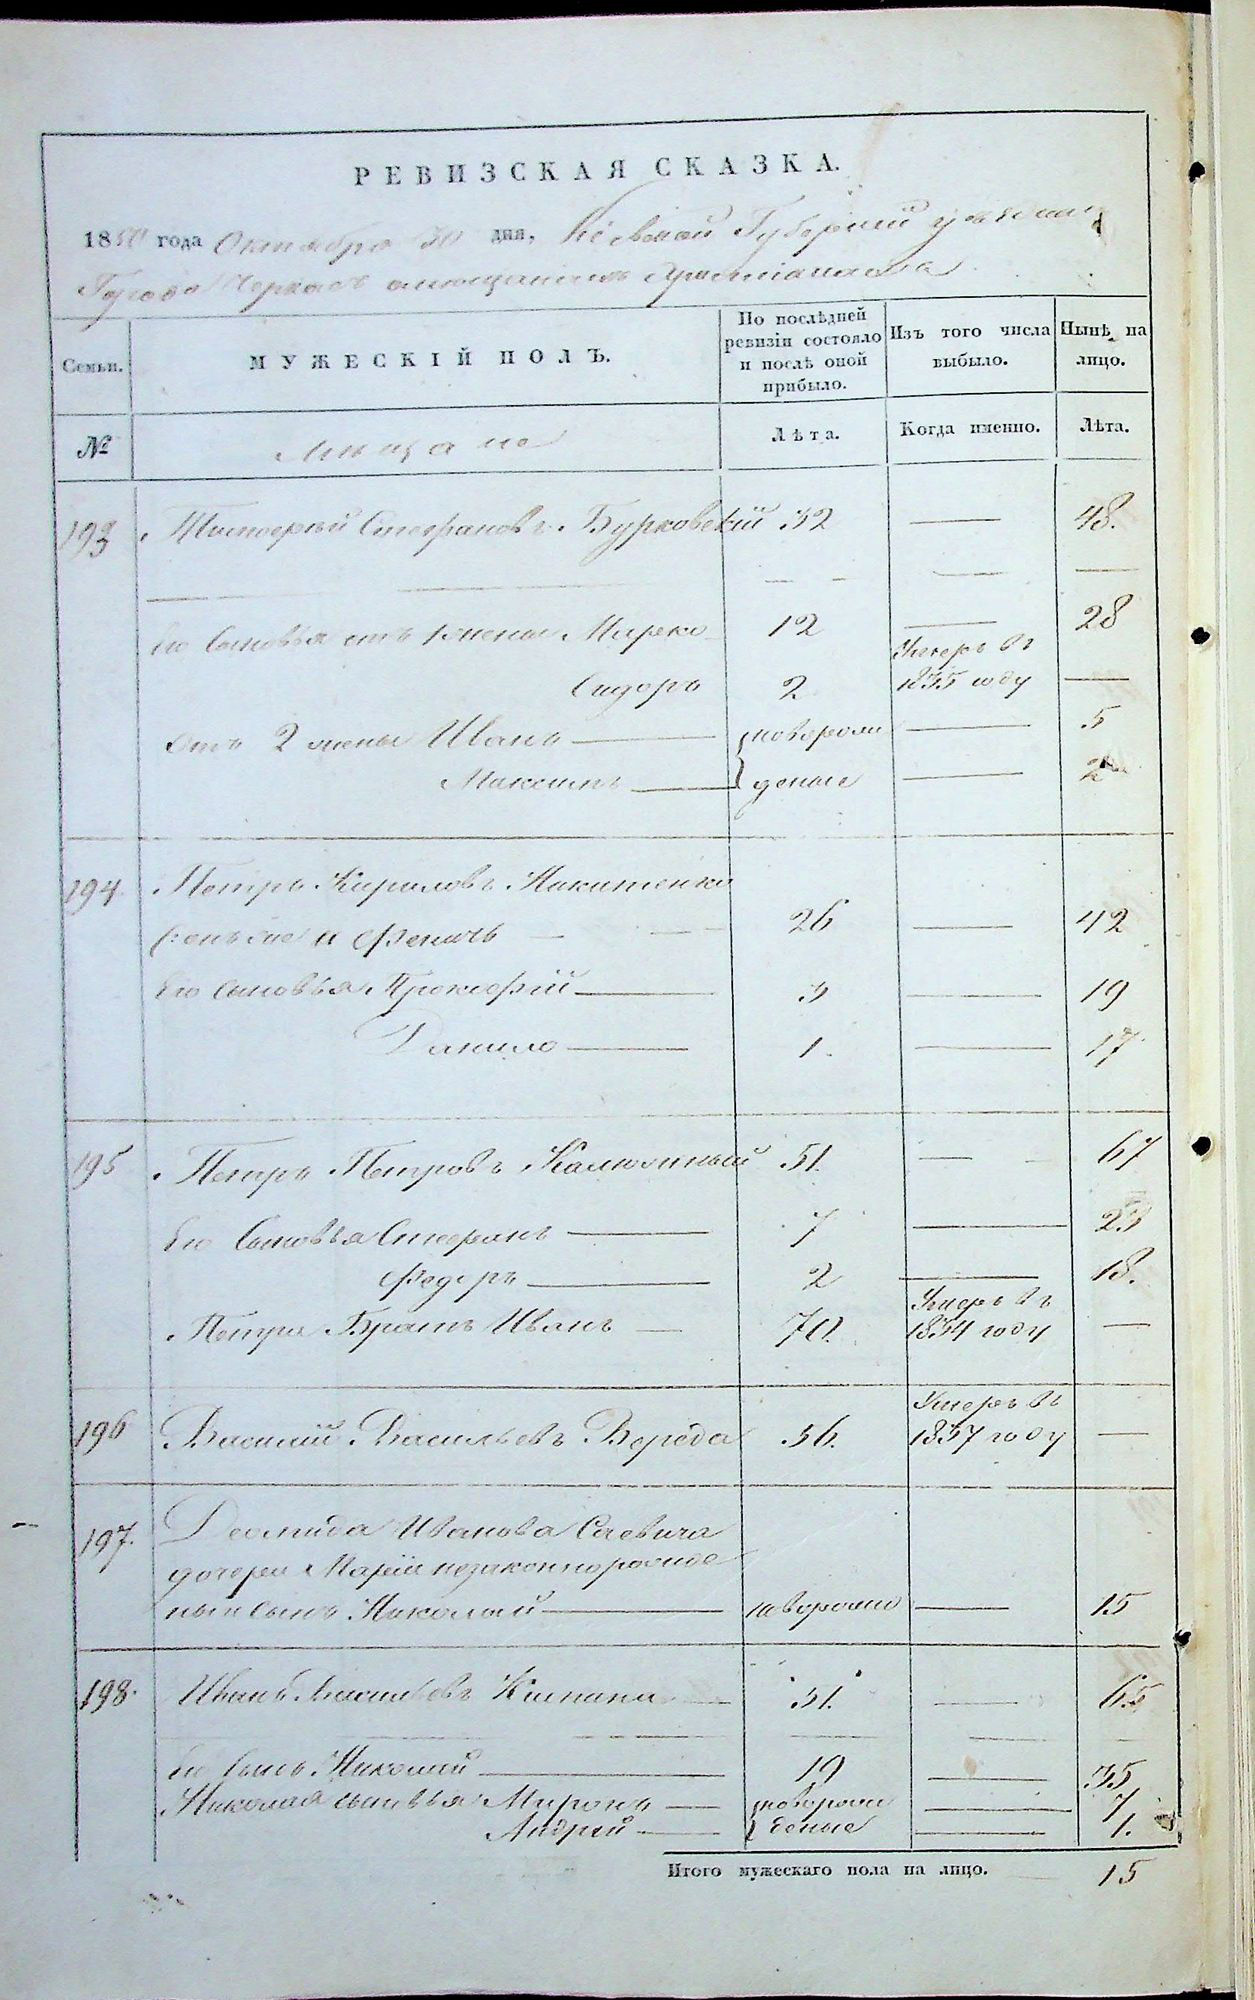 РЕВИЗСКАЯ СКАЗКА.
1850 года Октября 30 дня, Кіевской Губерніи уѣзднаго
Города Черкасъ о мещанахъ Христіанахъ
Семьи. МУЖЕСКІЙ ПОЛЪ. По послѣдней ревизіи состояло и послѣ оной прибыло. Изъ того числа выбыло. Нынѣ на лицо.
№ Мещане Лѣта. Когда именно. Лѣта.
193 Тимофѣй Стефановъ Бурковскій 32 — 48.
Его Сыновья отъ 1 жены Марко 12 — 28
Сидоръ 2 Умеръ въ 1835 году —
Отъ 2 жены Иванъ — новорож — 5
Максимъ — денные — 2
194. Петръ Кириловъ Никитенко
26 — 42
Его Сыновья Прокофій — 3 — 19
Данило — 1. — 17
195 Петръ Петровъ Калюжный 51. — 67
Его Сыновья Стефанъ — 7 — 23
Федоръ — 2 — 18.
Петра Братъ Иванъ — 70. Умеръ въ 1834 году —
196 Василій Васильевъ Вереда 56. Умеръ въ 1837 году —
197. Деомида Иванова Саевича
дочери Маріи незаконнорожде
нный сынъ Николай — новорожд — 15
198. Иванъ Васильевъ — 51. — 65
Его Сынъ Николай — 19 — 35
Николая сыновья Миронъ — новорож — 7
Андрей — денные — 1.
Итого мужескаго пола на лицо. — 15